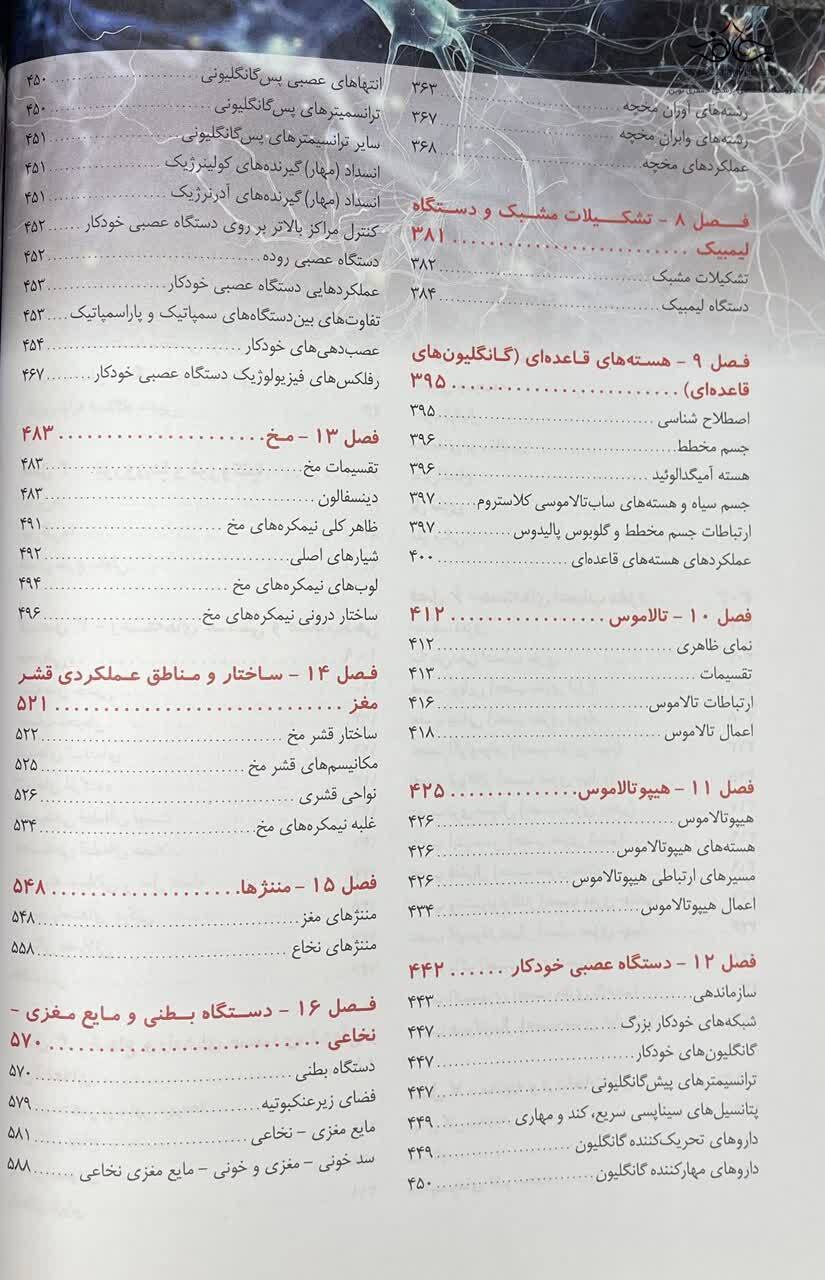 رشته‌های آوران مخچه ........ ۳۶۳
رشته‌های وابران مخچه ........ ۳۶۷
عملکردهای مخچه ........ ۳۶۸
فصل ۸ - تشکیلات مشبک و دستگاه
لیمبیک ........ ۳۸۱
تشکیلات مشبک ........ ۳۸۲
دستگاه لیمبیک ........ ۳۸۴
فصل ۹ - هسته‌های قاعده‌ای (گانگلیون‌های
قاعده‌ای) ........ ۳۹۵
اصطلاح شناسی ........ ۳۹۵
جسم مخطط ........ ۳۹۶
هسته آمیگدالوئید ........ ۳۹۶
جسم سیاه و هسته‌های ساب‌تالاموسی کلاستروم ........ ۳۹۷
ارتباطات جسم مخطط و گلوبوس پالیدوس ........ ۳۹۷
عملکردهای هسته‌های قاعده‌ای ........ ۴۰۰
فصل ۱۰ - تالاموس ........ ۴۱۲
نمای ظاهری ........ ۴۱۲
تقسیمات ........ ۴۱۳
ارتباطات تالاموس ........ ۴۱۶
اعمال تالاموس ........ ۴۱۸
فصل ۱۱ - هیپوتالاموس ........ ۴۲۵
هیپوتالاموس ........ ۴۲۶
هسته‌های هیپوتالاموس ........ ۴۲۶
مسیرهای ارتباطی هیپوتالاموس ........ ۴۲۶
اعمال هیپوتالاموس ........ ۴۳۴
فصل ۱۲ - دستگاه عصبی خودکار ........ ۴۴۲
سازماندهی ........ ۴۴۳
شبکه‌های خودکار بزرگ ........ ۴۴۷
گانگلیون‌های خودکار ........ ۴۴۷
ترانسیمترهای پیش‌گانگلیونی ........ ۴۴۷
پتانسیل‌های سیناپسی سریع، کند و مهاری ........ ۴۴۹
داروهای تحریک‌کننده گانگلیون ........ ۴۴۹
داروهای مهارکننده گانگلیون ........ ۴۵۰
انتهاهای عصبی پس‌گانگلیونی ........ ۴۵۰
ترانسمیترهای پس‌گانگلیونی ........ ۴۵۰
سایر ترانسیمترهای پس‌گانگلیونی ........ ۴۵۱
انسداد (مهار) گیرنده‌های کولینرژیک ........ ۴۵۱
انسداد (مهار) گیرنده‌های آدرنرژیک ........ ۴۵۱
کنترل مراکز بالاتر بر روی دستگاه عصبی خودکار ........ ۴۵۲
دستگاه عصبی روده ........ ۴۵۲
عملکردهایی دستگاه عصبی خودکار ........ ۴۵۳
تفاوت‌های بین‌دستگاه‌های سمپاتیک و پاراسمپاتیک ........ ۴۵۳
عصب‌دهی‌های خودکار ........ ۴۵۴
رفلکس‌های فیزیولوژیک دستگاه عصبی خودکار ........ ۴۶۷
فصل ۱۳ - مخ ........ ۴۸۳
تقسیمات مخ ........ ۴۸۳
دینسفالون ........ ۴۸۳
ظاهر کلی نیمکره‌های مخ ........ ۴۹۱
شیارهای اصلی ........ ۴۹۲
لوب‌های نیمکره‌های مخ ........ ۴۹۴
ساختار درونی نیمکره‌های مخ ........ ۴۹۶
فصل ۱۴ - ساختار و مناطق عملکردی قشر
مغز ........ ۵۲۱
ساختار قشر مخ ........ ۵۲۲
مکانیسم‌های قشر مخ ........ ۵۲۵
نواحی قشری ........ ۵۲۶
غلبه نیمکره‌های مخ ........ ۵۳۴
فصل ۱۵ - مننژها ........ ۵۴۸
مننژهای مغز ........ ۵۴۸
مننژهای نخاع ........ ۵۵۸
فصل ۱۶ - دستگاه بطنی و مایع مغزی -
نخاعی ........ ۵۷۰
دستگاه بطنی ........ ۵۷۰
فضای زیرعنکبوتیه ........ ۵۷۹
مایع مغزی - نخاعی ........ ۵۸۱
سد خونی - مغزی و خونی - مایع مغزی نخاعی ........ ۵۸۸